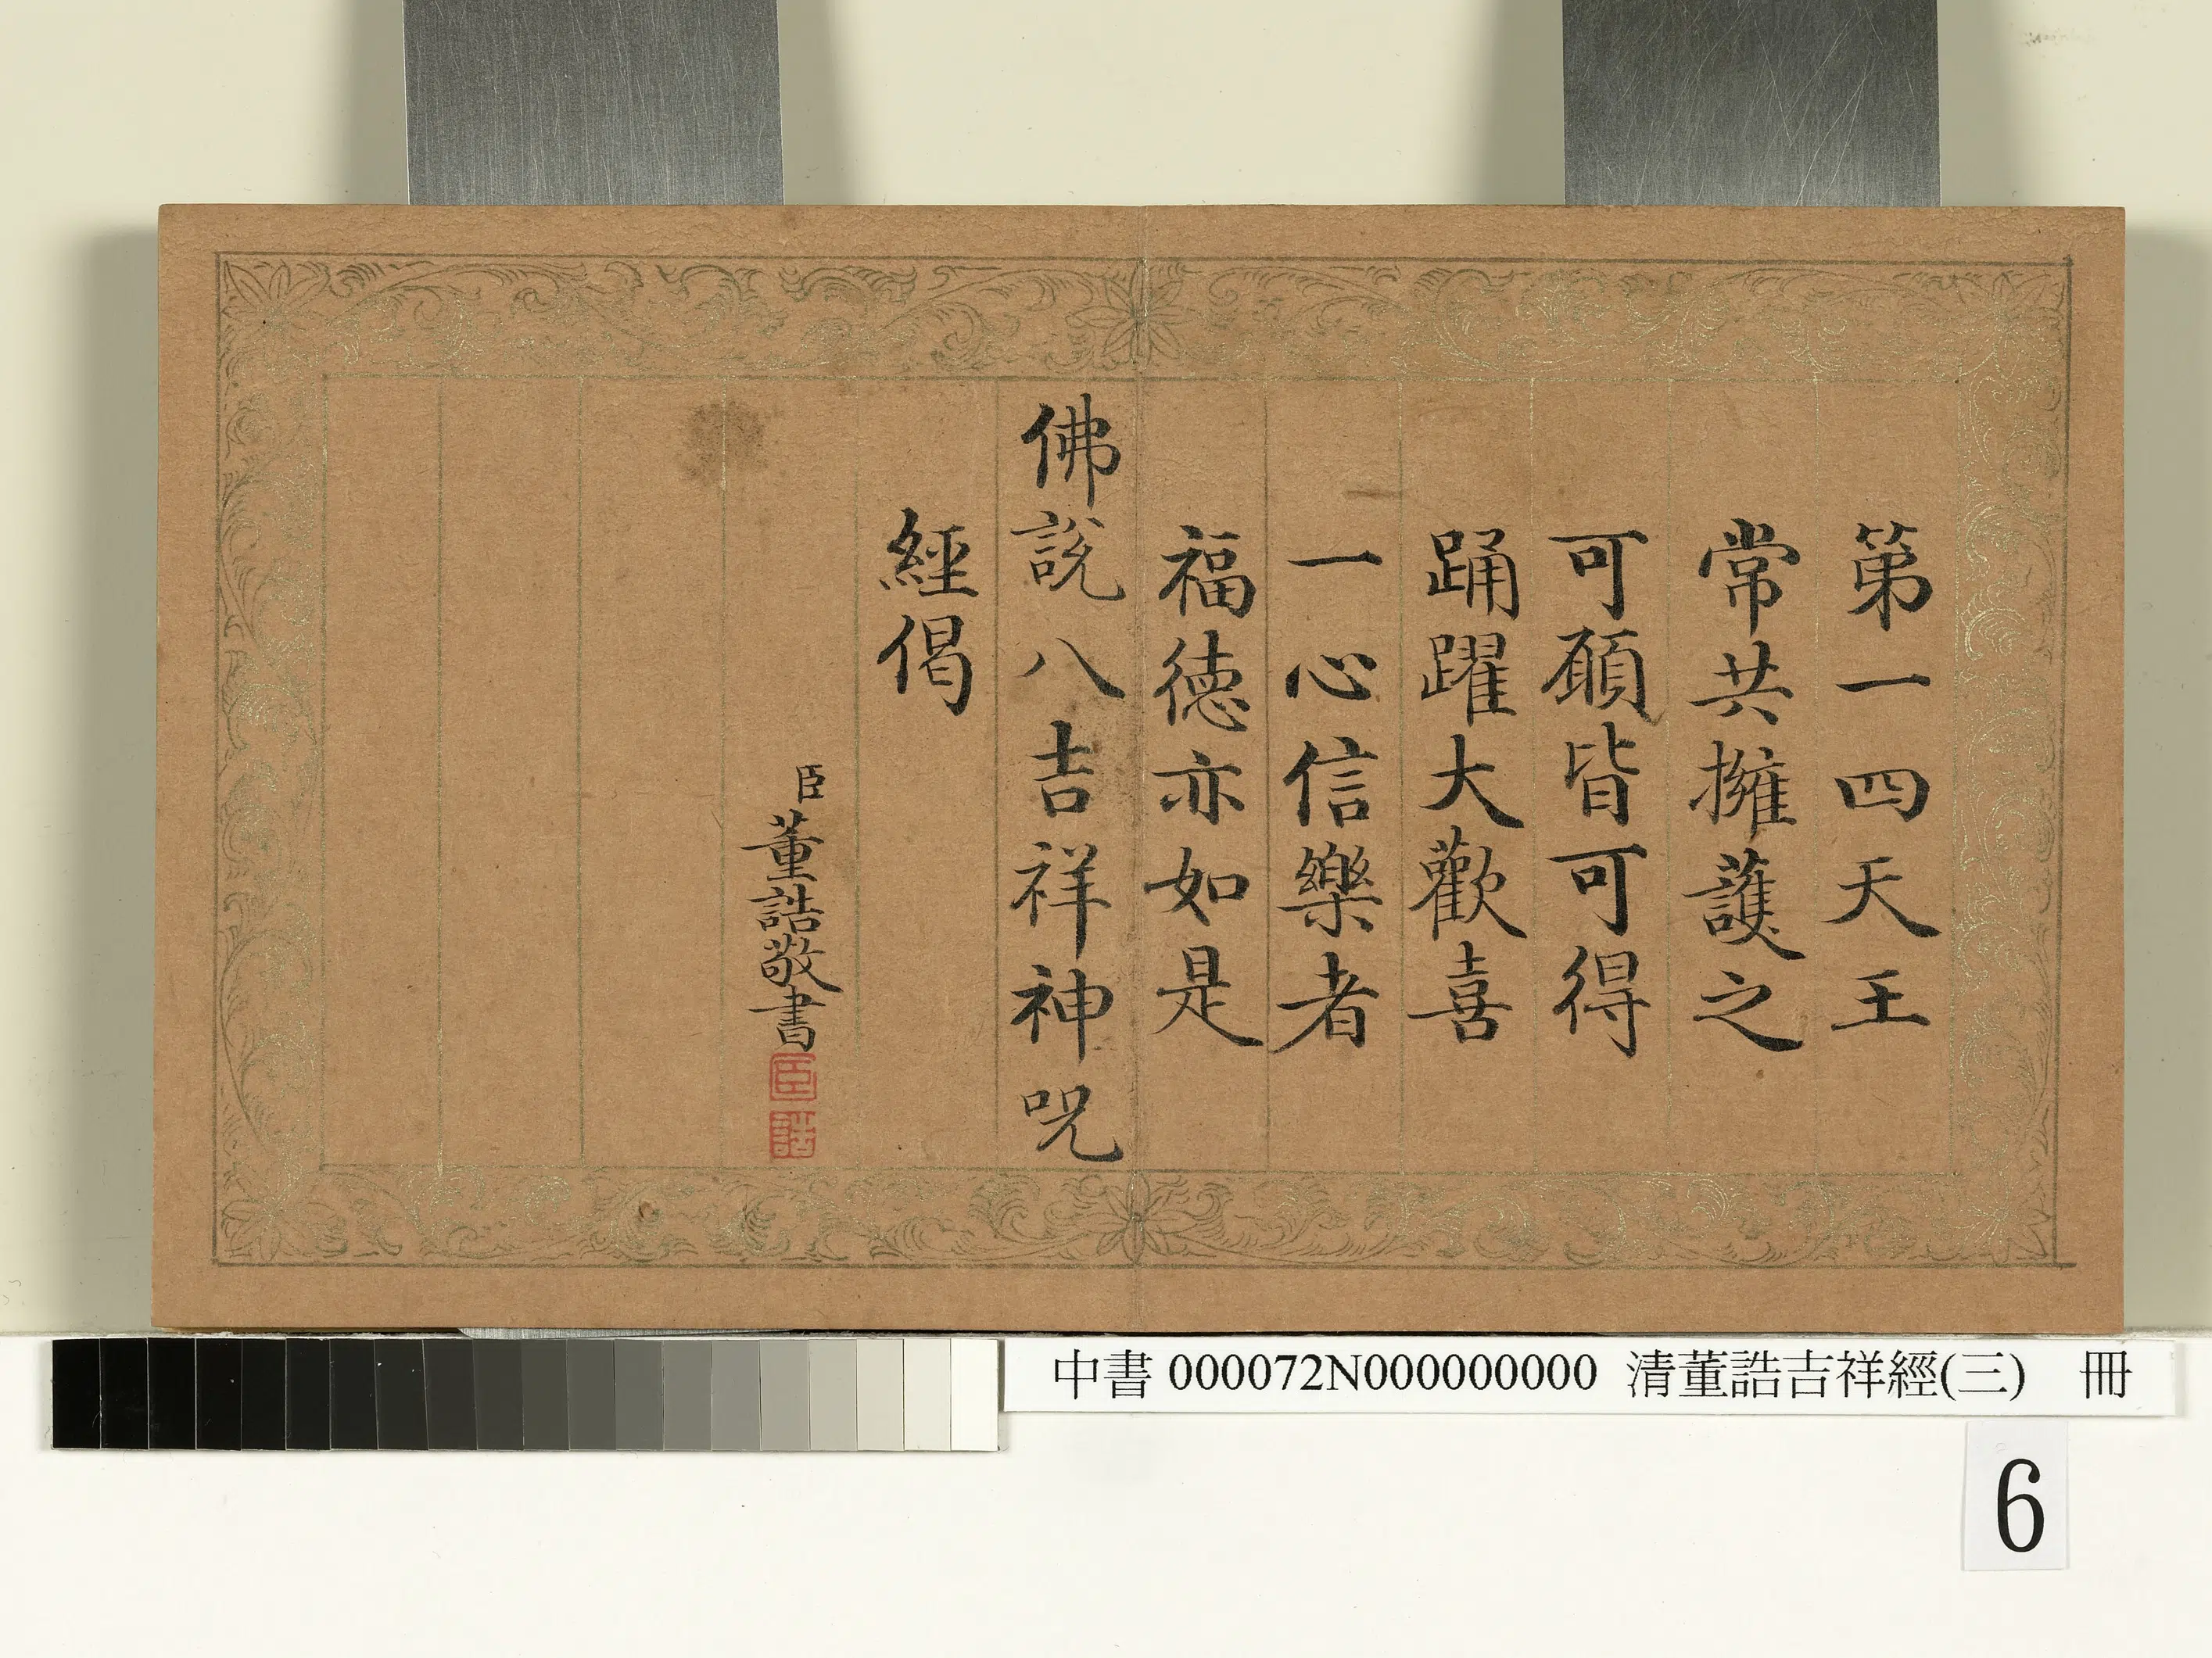 第一四天王
常共擁護之
可願皆可得
踊躍大歡喜
一心信樂者
福德亦如是
佛說八吉祥神呪
經偈
臣董誥敬書
臣
誥
中書 000072N000000000 清董誥吉祥經(三) 冊
6